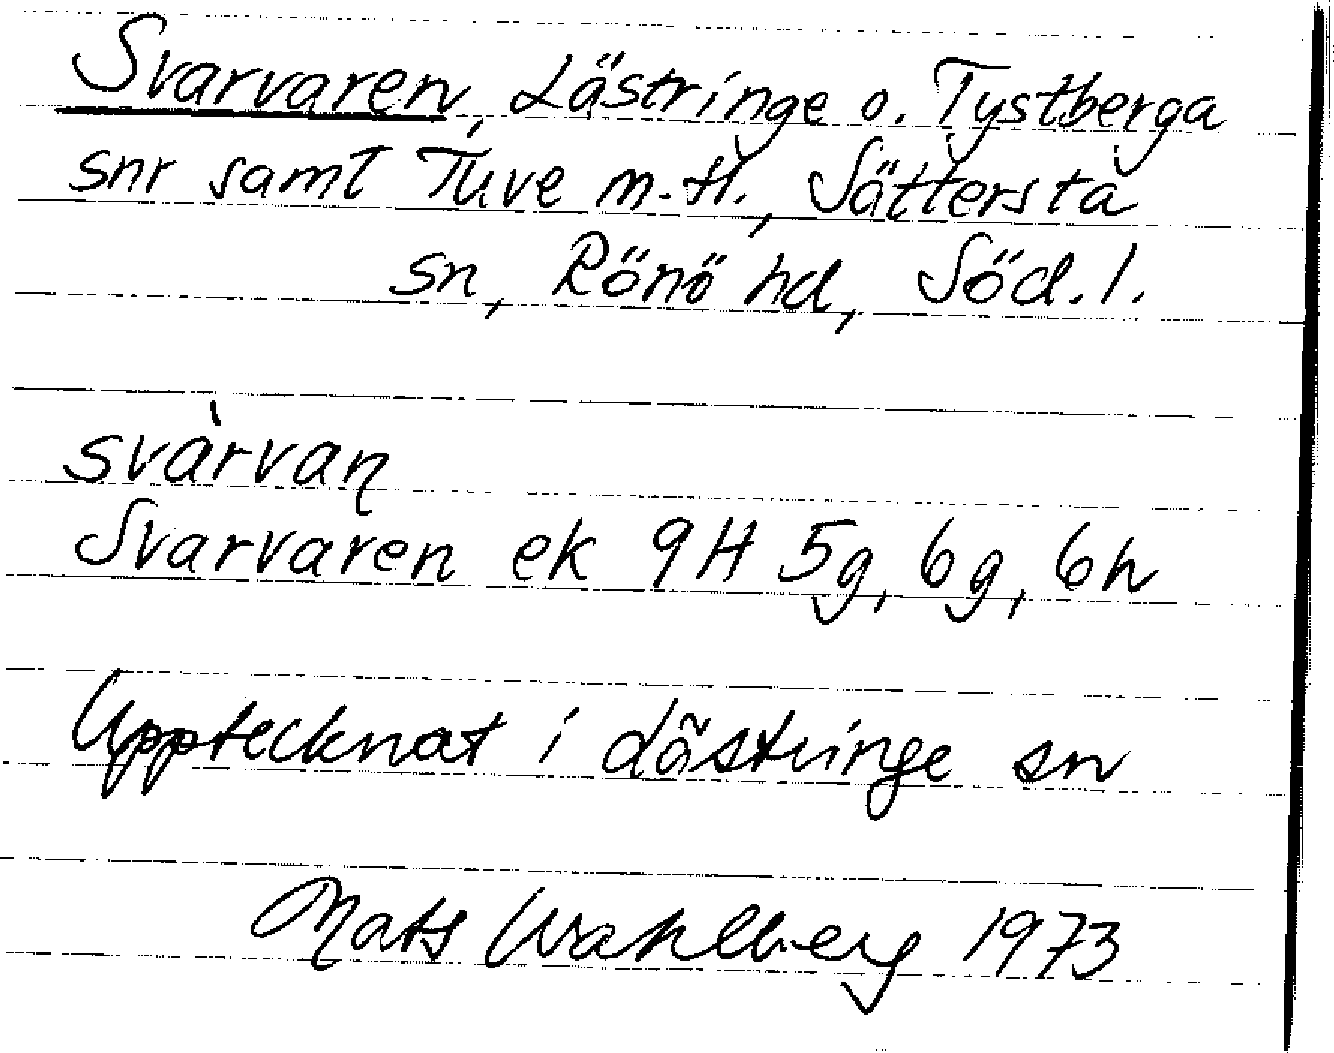 Svarvaren, Lästringe o. Tystberga
snr samt Tuve m. fl., Sättersta
sn, Rönö hd, Söd. l.
svàrvaɳ
Svarvaren ek 9H 5g, 6g, 6h
Upptecknat i Lästringe sn
Mats Wahlberg 1973